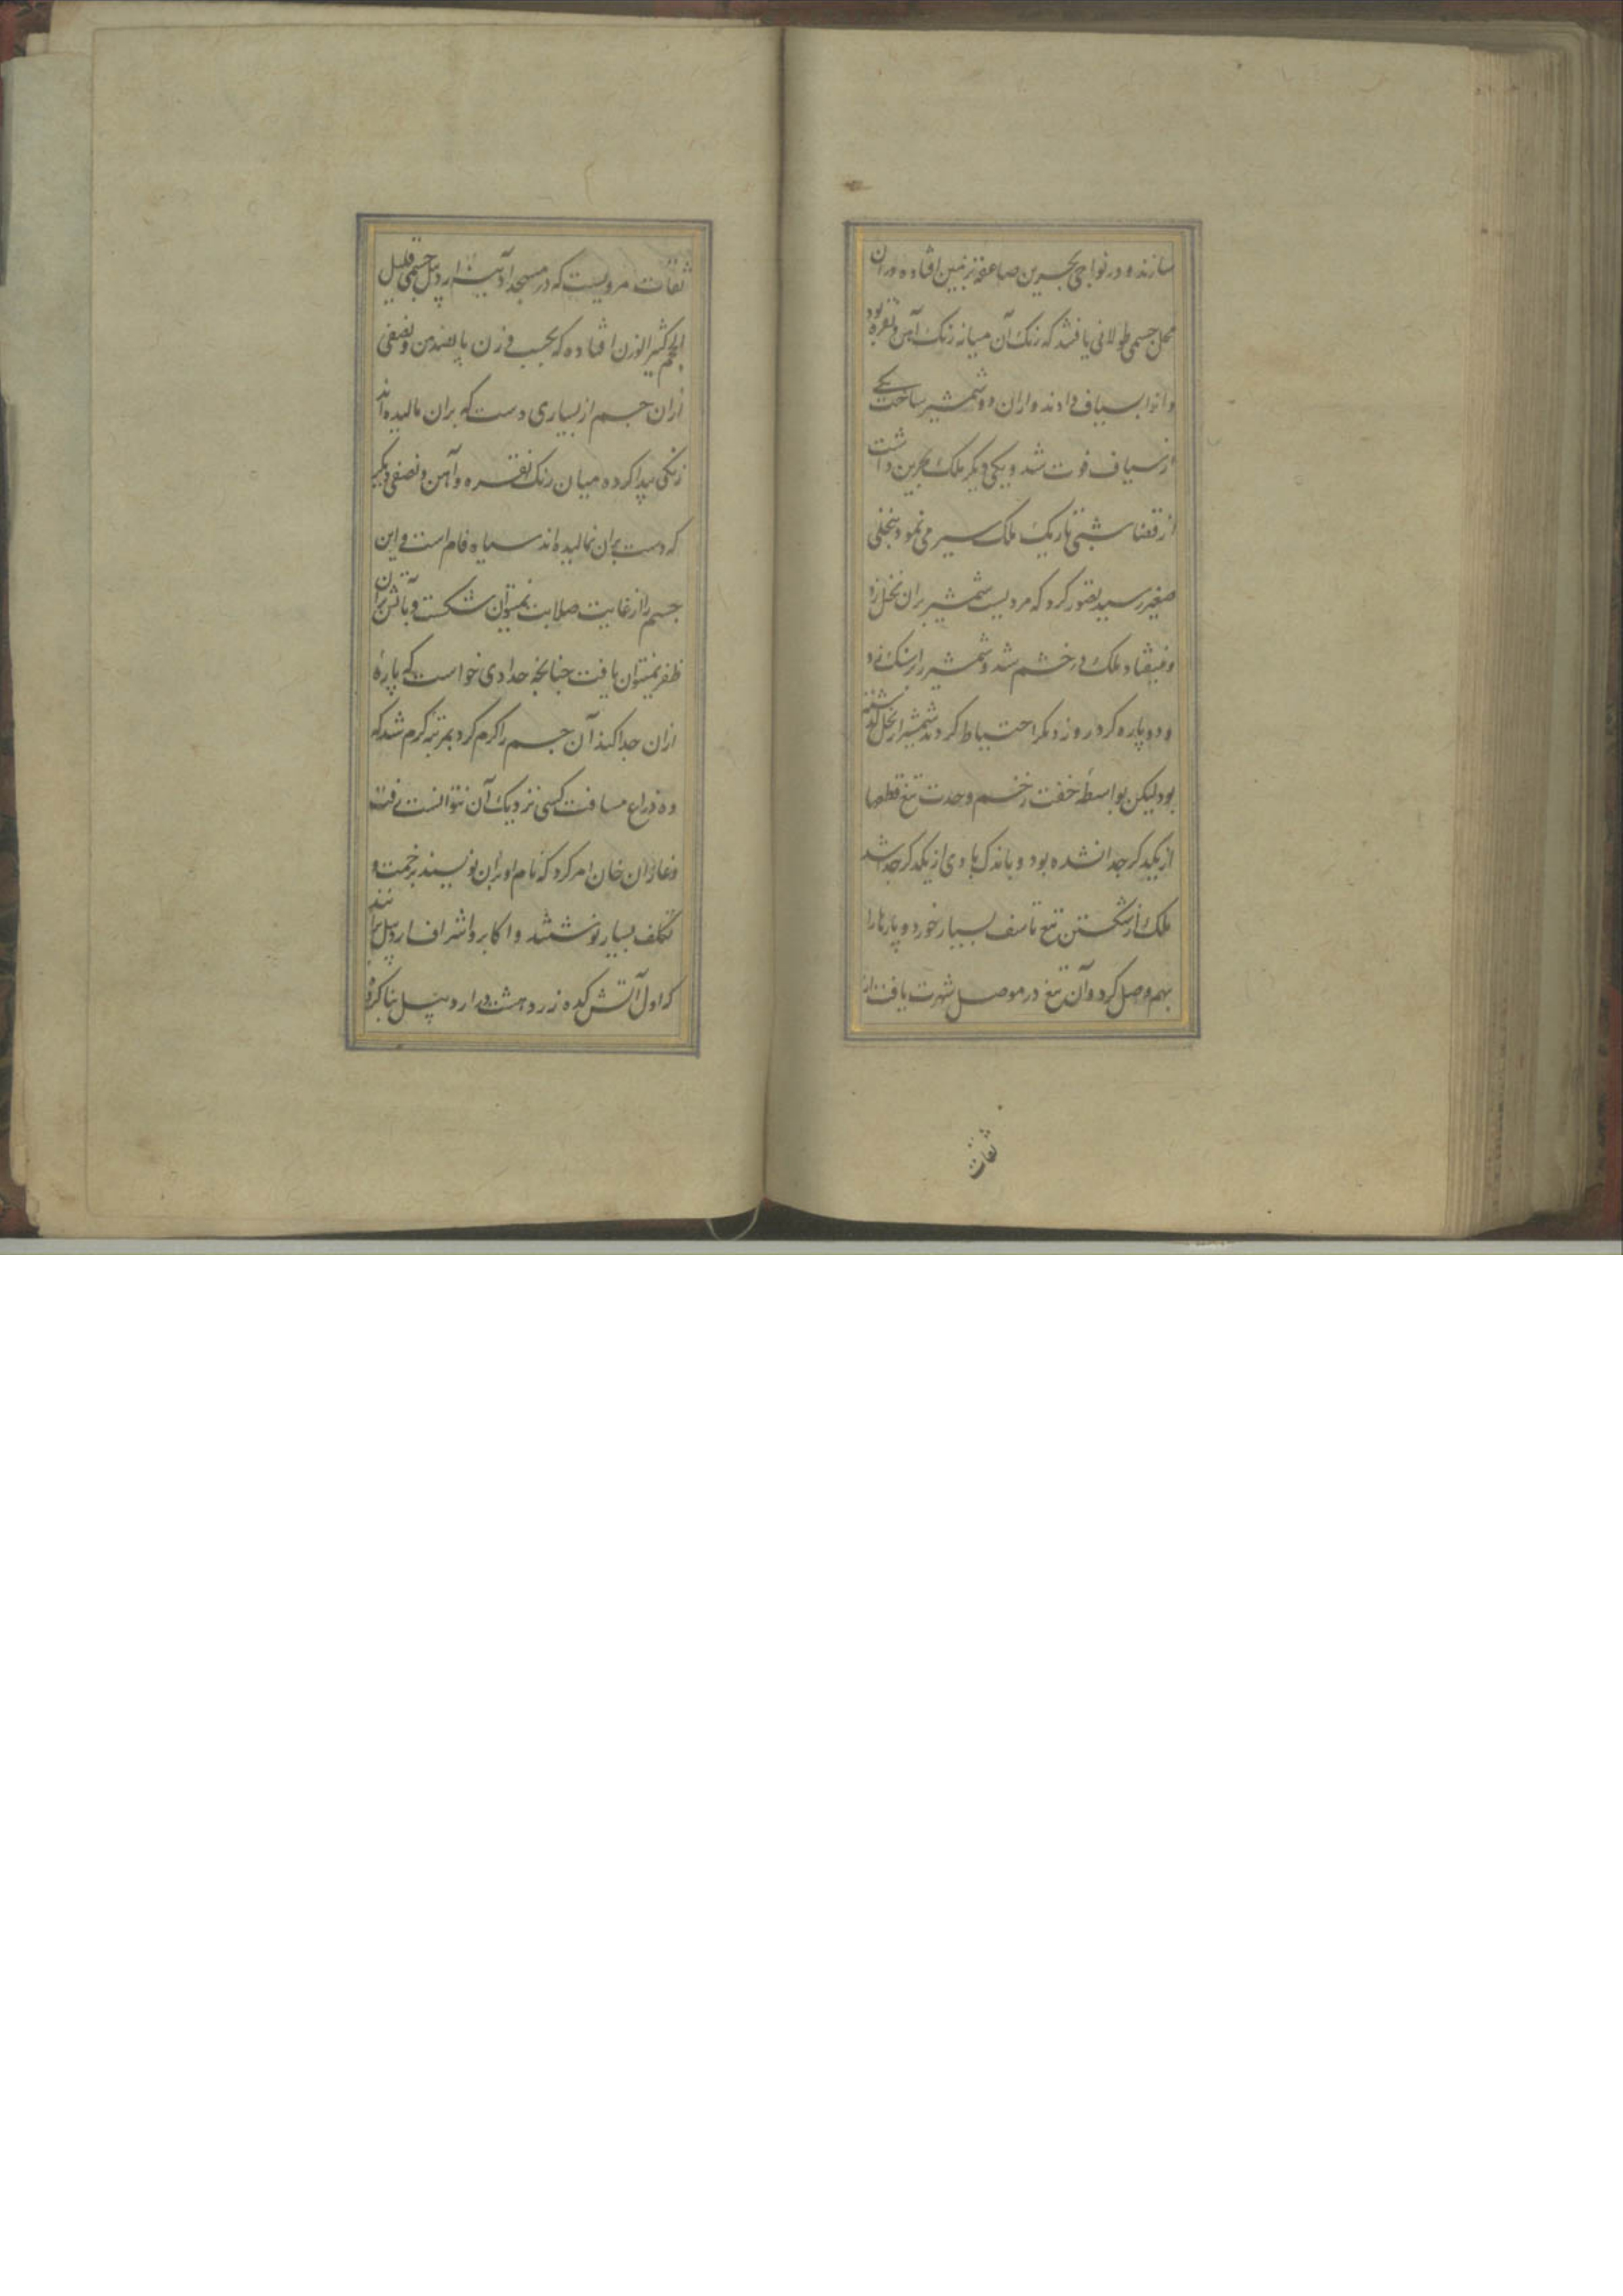 سازند و در نواحی بحرین صاعقه بزمین افتاده و در آن
محل جسمی طولانی یافتند که رنک آن میانه رنک آهن و نقره بود
و انرا بسیاف دادند و ازان دو شمشیر ساخت یکی
از سیاف فوت شد و یکی دیکر ملک بحرین داشت
از قضا شبی تاریک ملک سیر می نمود بنخلی
صغیر رسید تصور کرد که مردیست شمشیر بران نخل زد
و نیفتاد ملک در خشم شد و شمشیر را بر سنک زد
و دو پاره کرد روز دیکر احتیاط کردند شمشیر از نخل کذشته
بود لیکن بواسطهٔ خفت زخم و حدت تیغ قطعها
از یکدیکر جدا نشده بود و باندک بادی از یکدیکر جدا شد
ملک از شکستن تیغ تاسف بسیار خورد و پارها را
بهم وصل کرد و آن تیغ در موصل شهرت یافت از
ثقات
ثقات مرویست که در مسجد آدینه اردبیل جسمی قلیل
الحجم کثیر الوزن افتاده که بحسب وزن پانصد من و نصفی
ازان جسم از بسیاری دست که بران مالیده اند
رنکی پیدا کرده میان رنک نقره و آهن و نصفی دیکر
که دست بران نمالیده اند سیاه فام است و این
جسم را از غایت صلابت نمیتوان شکست و بآتش بران
ظفر نمیتوان یافت چنانچه حدادی خواست که پارهٔ
ازان جدا کند آن جسم را کرم کرد بمرتبه کرم شد که
ده ذراع مسافت کسی نزدیک آن نتوانست رفت
و غازان خان امر کرد که نام او بران نویسند بزحمت و
تکلف بسیار نوشتند و اکابر و اشراف اردبیل برانند
که اول آتش کده زردهشت در اردبیل بنا کرد